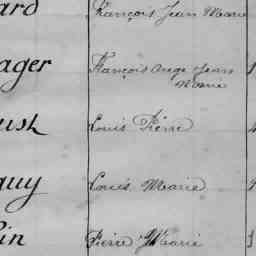 ard François Jean Marie
ager François Ange Jean
Marie
ush Louis Pierre
guy Louis Marie
in Pierre Marie